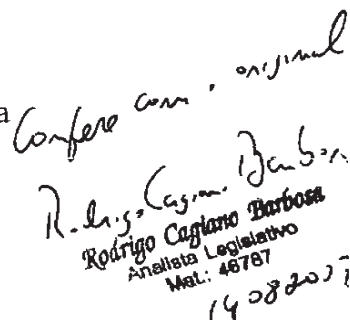 a
Confere com o original
Rodrigo Cagiano Barbosa
Rodrigo Cagiano Barbosa
Analista Legislativo
Mat.: 46787